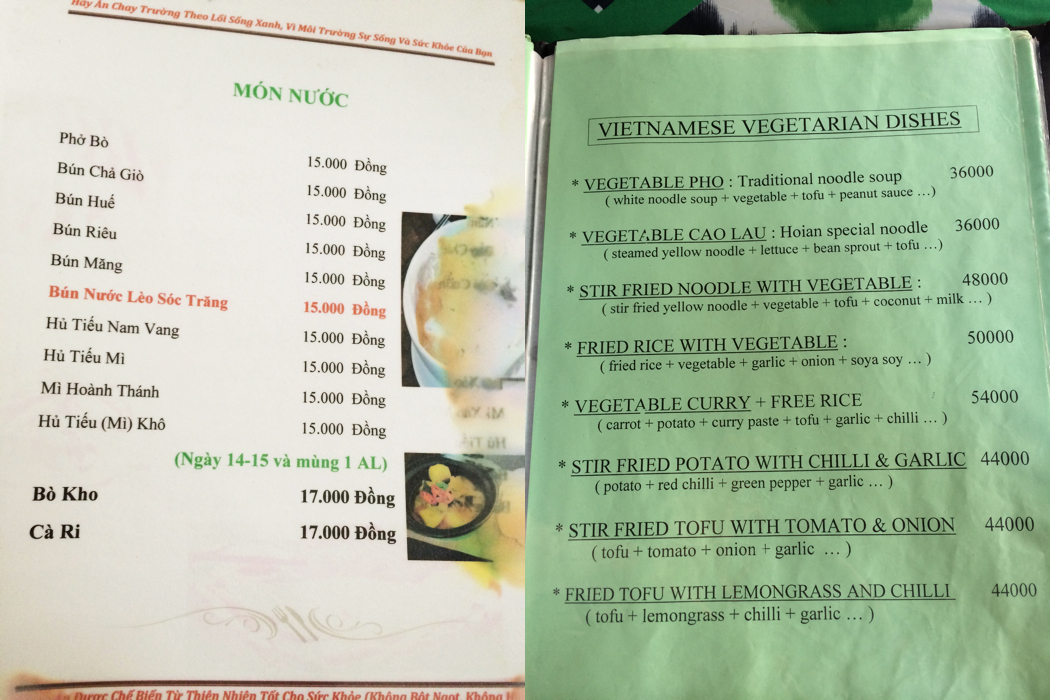 Hãy Ăn Chay Trường Theo Lối Sống Xanh, Vì Môi Trường Sự Sống Và Sức Khỏe Của Bạn
MÓN NƯỚC
Phở Bò 15.000 Đồng
Bún Chả Giò 15.000 Đồng
Bún Huế 15.000 Đồng
Bún Riêu 15.000 Đồng
Bún Măng 15.000 Đồng
Bún Nước Lèo Sóc Trăng 15.000 Đồng
Hủ Tiếu Nam Vang 15.000 Đồng
Hủ Tiếu Mì 15.000 Đồng
Mì Hoành Thánh 15.000 Đồng
Hủ Tiếu (Mì) Khô 15.000 Đồng
(Ngày 14-15 và mùng 1 AL)
Bò Kho 17.000 Đồng
Cà Ri 17.000 Đồng
Được Chế Biến Từ Thiên Nhiên Tốt Cho Sức Khỏe (Không Bột Ngọt, Không
VIETNAMESE VEGETARIAN DISHES
* VEGETABLE PHO : Traditional noodle soup 36000
( white noodle soup + vegetable + tofu + peanut sauce …)
* VEGETABLE CAO LAU : Hoian special noodle 36000
( steamed yellow noodle + lettuce + bean sprout + tofu …)
* STIR FRIED NOODLE WITH VEGETABLE : 48000
( stir fried yellow noodle + vegetable + tofu + coconut + milk … )
* FRIED RICE WITH VEGETABLE : 50000
( fried rice + vegetable + garlic + onion + soya soy … )
* VEGETABLE CURRY + FREE RICE 54000
( carrot + potato + curry paste + tofu + garlic + chilli … )
* STIR FRIED POTATO WITH CHILLI & GARLIC 44000
( potato + red chilli + green pepper + garlic … )
* STIR FRIED TOFU WITH TOMATO & ONION 44000
( tofu + tomato + onion + garlic … )
* FRIED TOFU WITH LEMONGRASS AND CHILLI 44000
( tofu + lemongrass + chilli + garlic … )